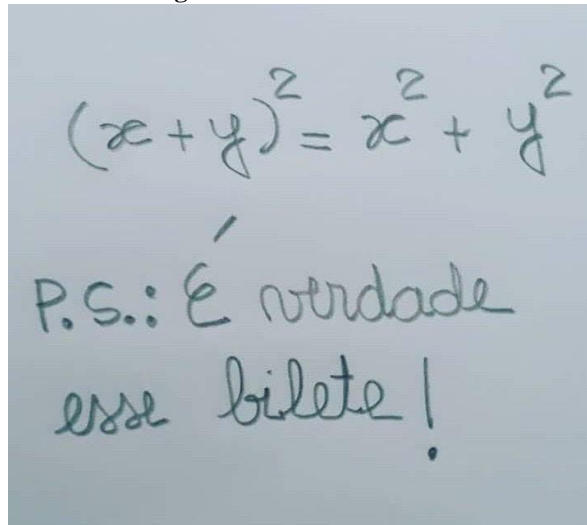 (x+y)²= x² + y²
P.S.: É verdade
esse bilete!